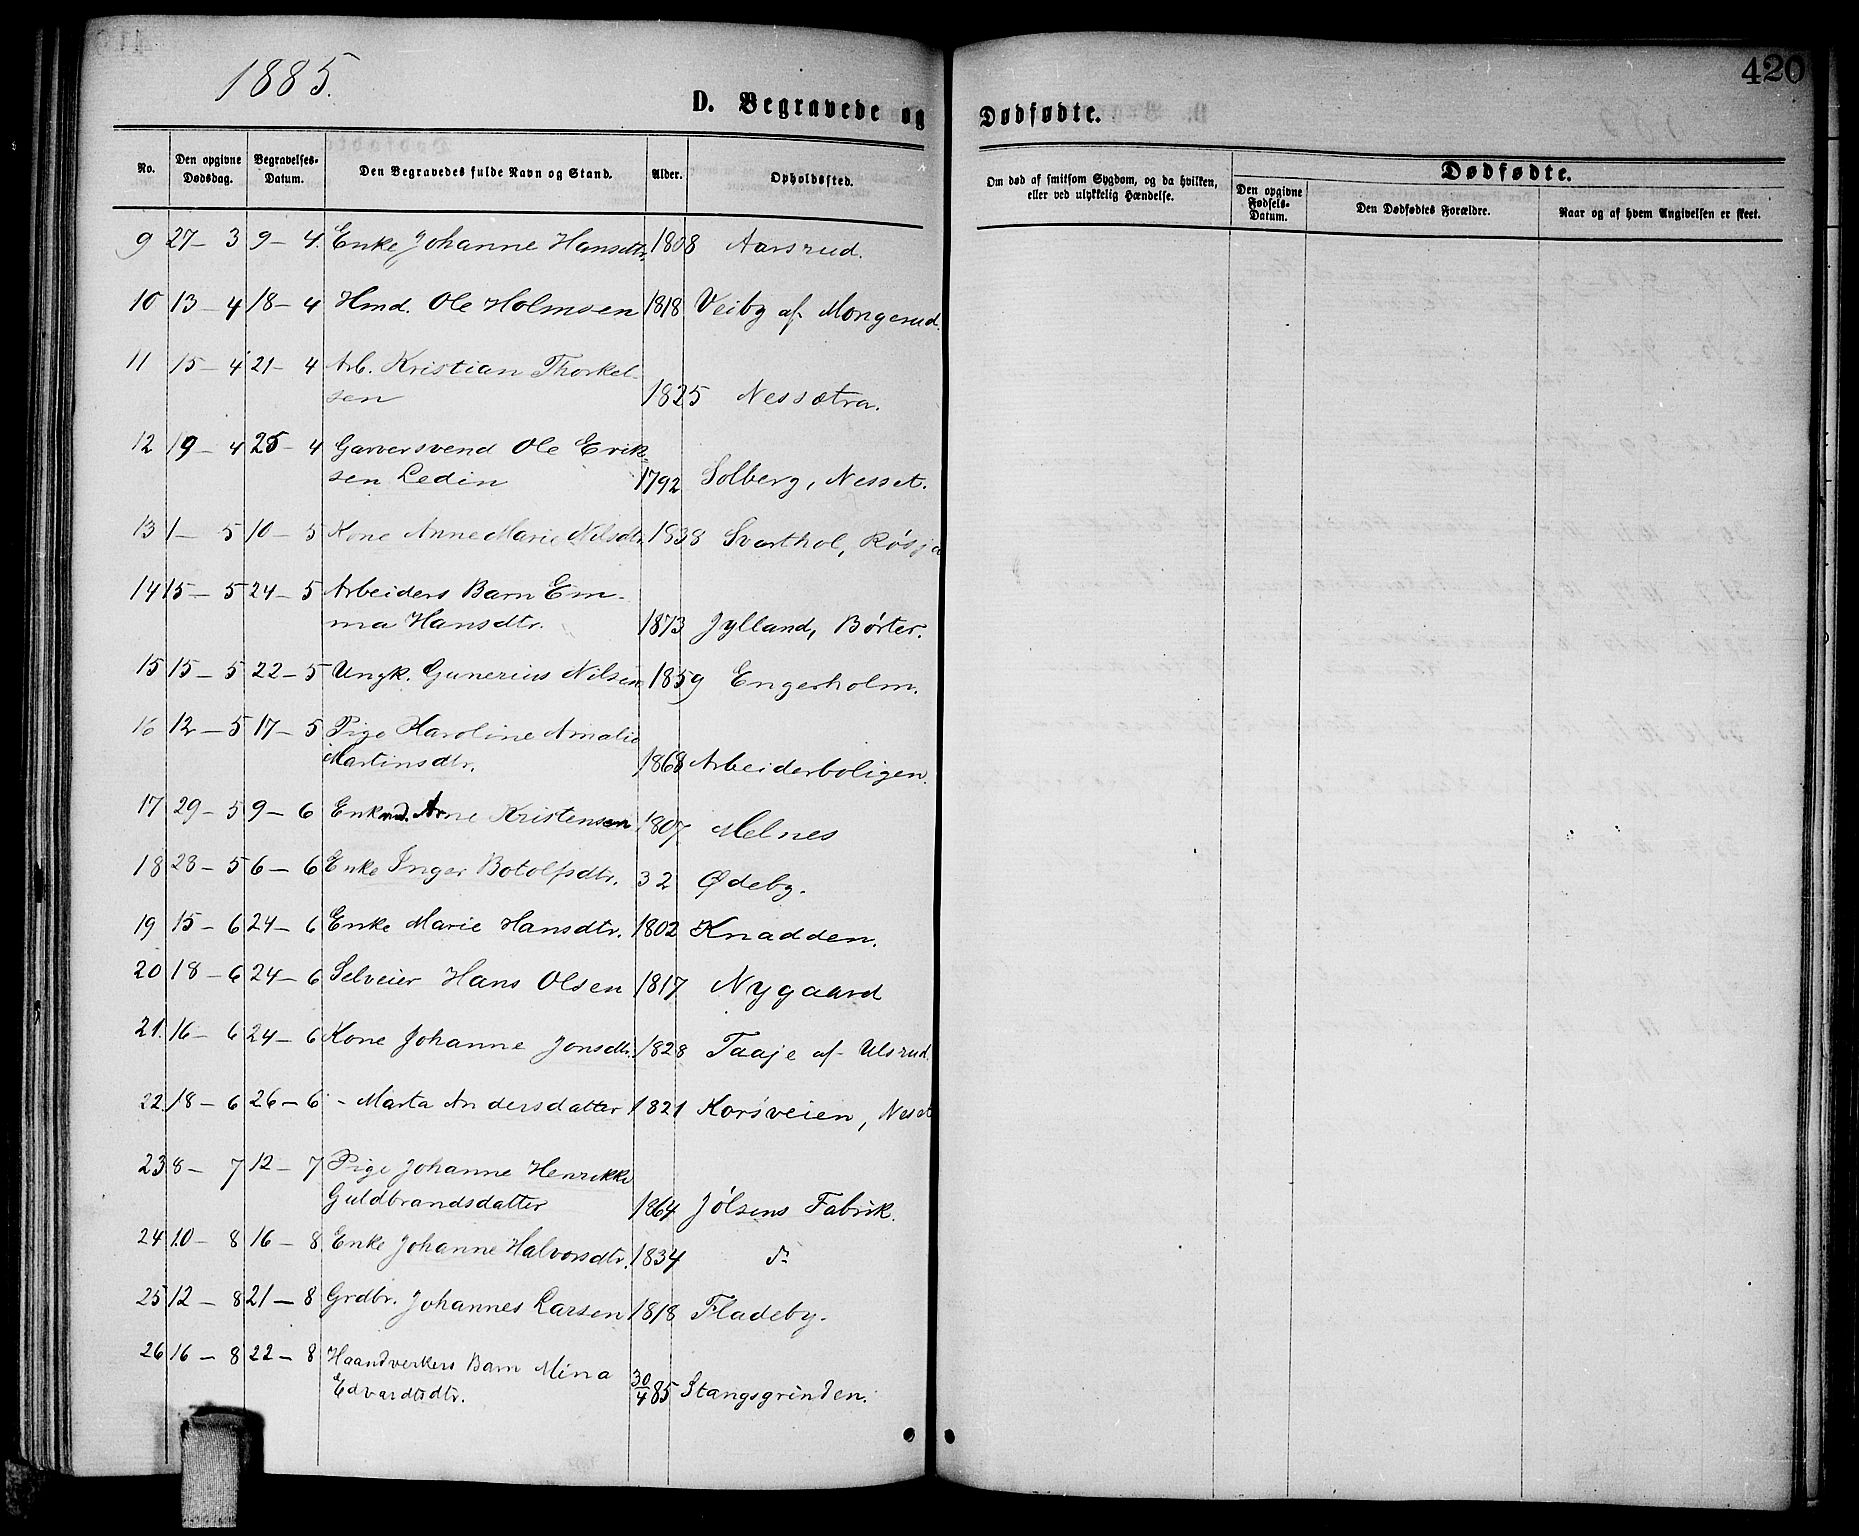 1885.
420
D. Begravede og Dødfødte.
No. Den opgivne Dødsdag. Begravelses-Datum. Den Begravedes fulde Navn og Stand. Alder. Opholdssted. Om død af smitsom Sygdom, og da hvilken, eller ved ulykkelig Hændelse. Dødfødte.
Den opgivne Fødsels-Datum. Den Dødfødtes Forældre. Naar og af hvem Angivelsen er skeet.
9 27 – 3 9 – 4. Enke Johanne Hansdtr. 1808 Aarsrud.
10 13 – 4 18 – 4 Hmd. Ole Holmsen 1818 Veiby af Mongerud.
11 15 – 4 21 – 4 Arb. Kristian Thorkel-
sen 1825 Nessætra.
12 19 – 4 25 – 4 Garversvend Ole Erik-
sen Ledin 1792 Solberg, Nesset.
13 1 – 5 10 – 5 Kone Anne Marie Nilsdtr. 1838 Svarthol, Røsja
14 15 – 5 24 – 5 Arbeiders Barn Em-
ma Hansdtr. 1873 Jylland, Børter.
15 15 – 5 22 – 5 Ungk. Gunerius Nilsen 1859 Engerholm.
16 12 – 5 17 – 5 Pige Karoline Amalie
Martinsdtr. 1868 Arbeiderboligen.
17 29 – 5 9 – 6 Enkmd. Arne Kristensen 1807 Melnes
18 28 – 5 6 – 6 Enke Inger Botolfsdtr. 32 Ødeby.
19 15 – 6 24 – 6 Enke Marie Hansdtr. 1802 Knadden.
20 18 – 6 24 – 6 Selveier Hans Olsen 1817 Nygaard
21. 16 – 6 24 – 6 Kone Johanne Jonsdtr. 1828 Taaje af Ulsrud.
22. 18 – 6 26 – 6 – Marta Andersdatter 1821 Korsveien, Neset
23 8 – 7 12 – 7 Pige Johanne Henrikke
Guldbrandsdatter 1864 Jølsens Fabrik.
24 10 – 8 16 – 8 Enke Johanne Halvorsdtr. 1834 do
25 12 – 8 21 – 8 Grdbr. Johannes Larsen 1818 Fladeby.
26 16 – 8 22 – 8 Haandverkers Barn Mina
Edvardtsdtr. 30/4 85 Stangsgrinden.